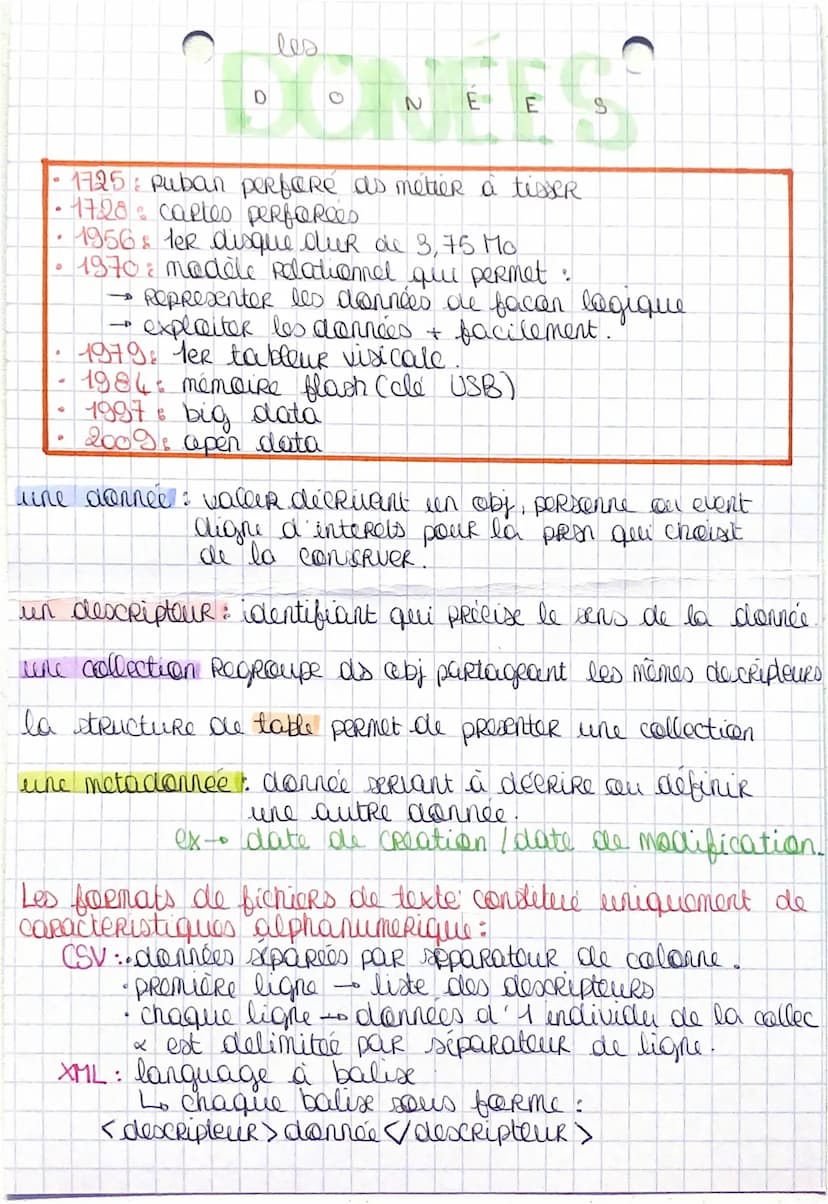 les
DONÉES
D O N É E S
• 1725 : ruban perforé ds métier à tisser
• 1728 : cartes perforées
• 1956 : 1er disque dur de 3,75 Mo
• 1970 : modèle relationnel qui permet :
→ représenter les données de facon logique
→ exploiter les données + facilement.
• 1979 : 1er tableur visicalc.
• 1984 : mémoire flash (clé USB)
• 1997 : big data
• 2009 : open data
une donnée : valeur décrivant un obj, personne ou event
digne d'interets pour la prsn qui choisit
de la conserver.
un descripteur : identifiant qui précise le sens de la donnée.
une collection regroupe ds obj partageant les mêmes descripteurs
la structure de table permet de presenter une collection
une metadonnée : donnée servant à décrire ou définir
une autre donnée.
ex → date de creation / date de modification.
Les formats de fichiers de texte constitué uniquement de
caracteristiques alphanumerique :
CSV : • données séparées par séparateur de colonne.
• première ligne → liste des descripteurs
• chaque ligne → données d'1 individu de la collec
& est delimitée par séparateur de ligne.
XML : language à balise
↳ chaque balise sous forme :
<descripteur> donnée </descripteur>